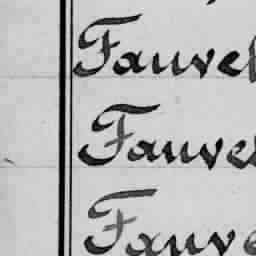 Fauvel
Fauve
Fauve